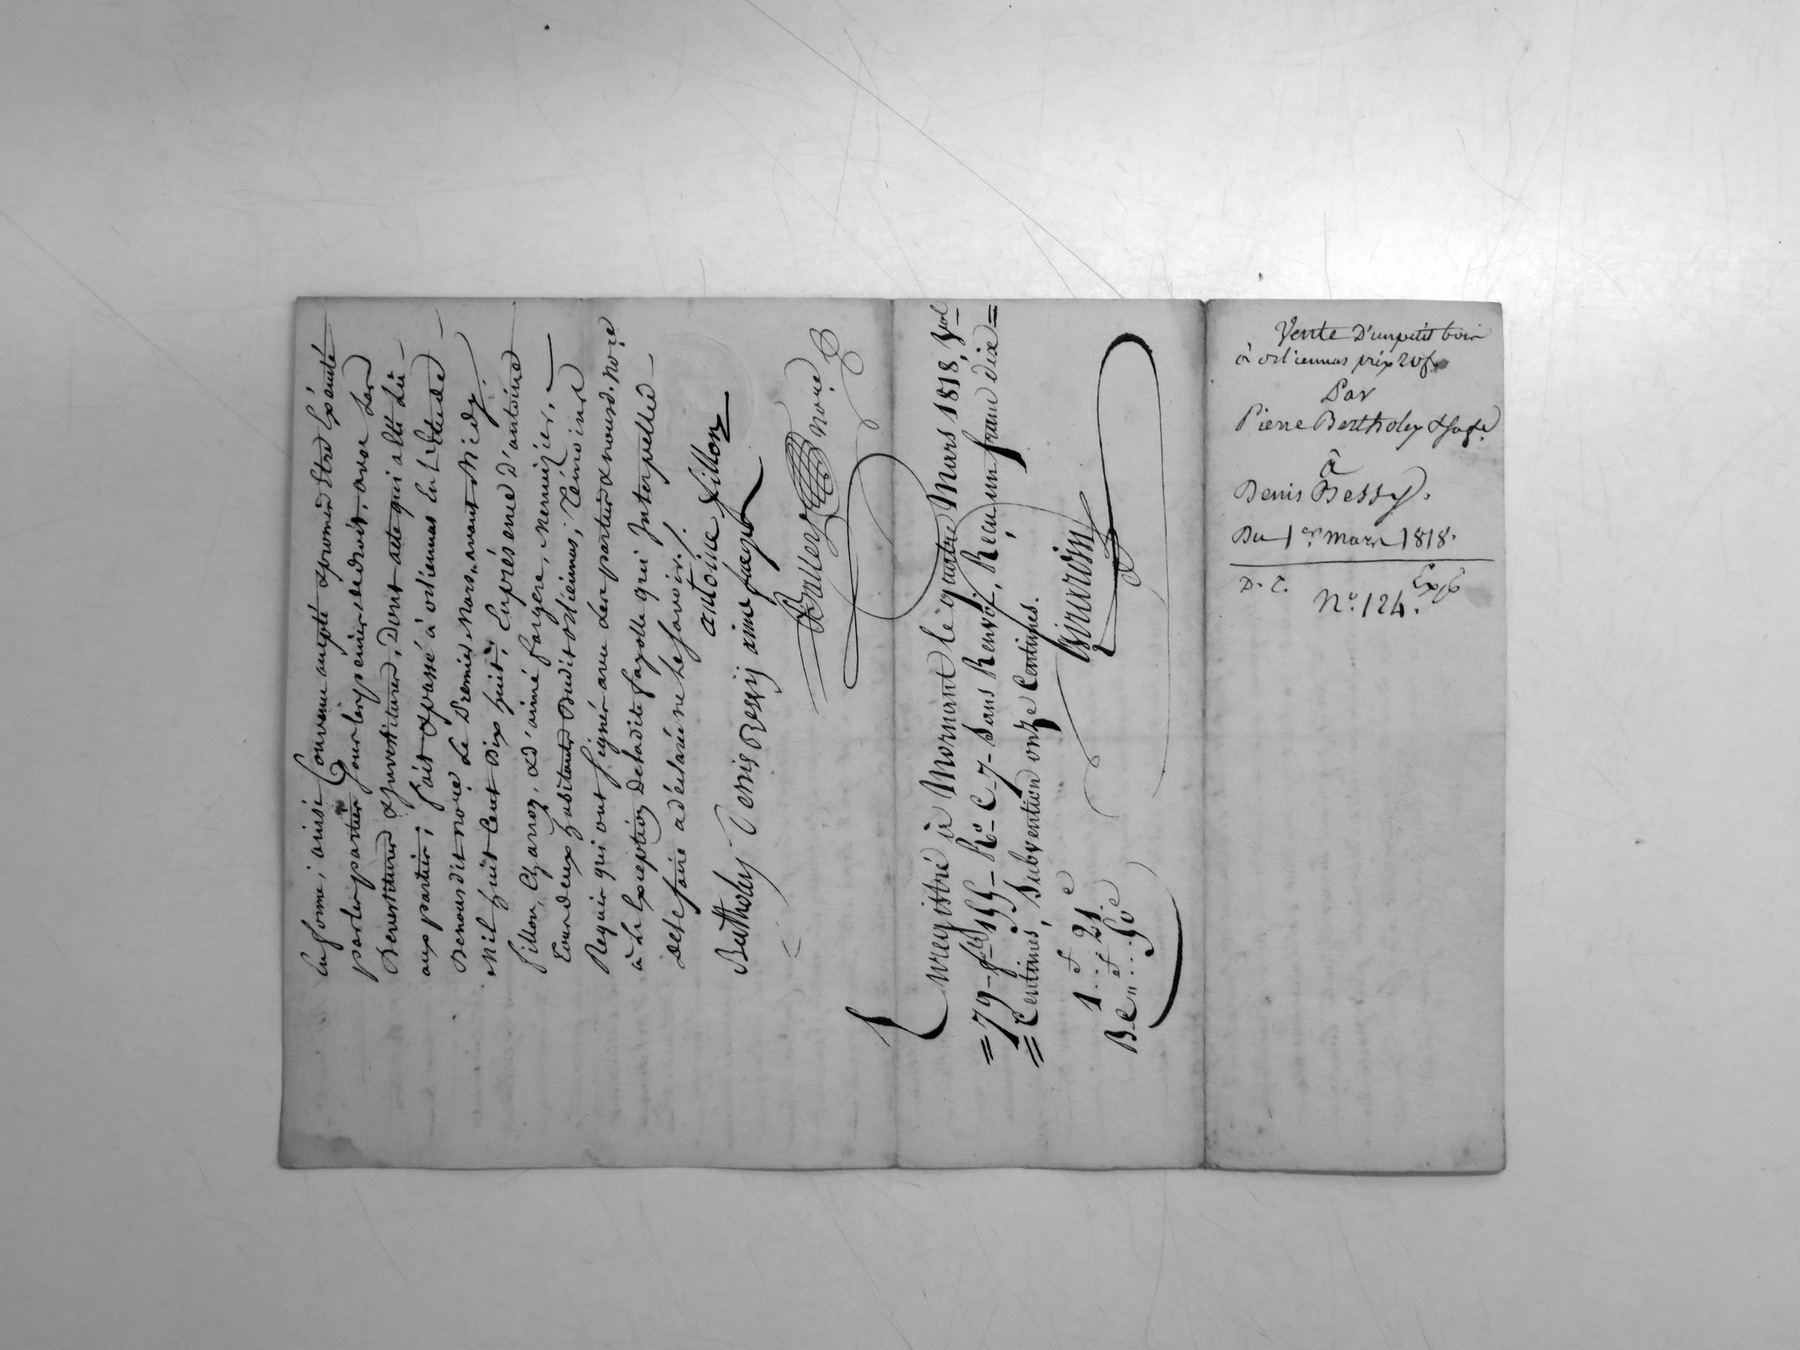 en forme; ainsi Convenu accepté & promis Etre Exécuté
par les parties pour les y peines de droit, avec les
Devestitures & Investitures, Dont acte qui a été Lû
aux parties; fait & passé à orliennas En L'Etude de
Demourdit no.re Le Premier Mars, avant Midy.
Mil huit Cent Dix huit, En présence D'antoine
fillon, Charron, & D'aimé farges, Menuizier,
tous deux habitants Dudit orliennas, Témoins
Requis qui ont signé avec Les parties & nousd. no.re
à L'exception De ladite fayolle qui Interpellée
De le faire a déclaré ne le savoir./.
antoine fillon
Bertholley Denis Bessy aimé farges
no.re
Enregistré à Mornant le quatre Mars 1818, vol
=79= f° 155 R° C 7. Sans Renvoi, Reçu un franc dix=
= Centimes, Subvention onze Centimes.
1 f 21 c
Girardin
Vente D'un petit bois
à orliennas prix 20 f.
Par
Pierre Bertholey & sa fe.
à
Denis Bessy.
Du 1er. Mars 1818.
D. E.
Exp
N°. 124.